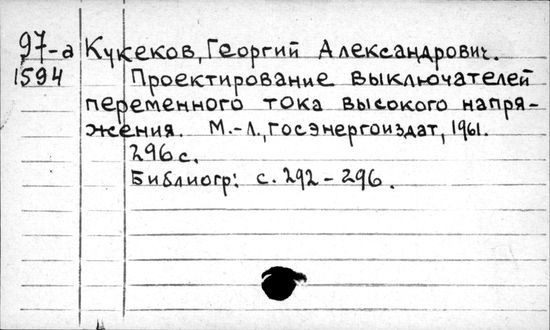 97-а Кукеков, Георгий Александрович.
1594 Проектирование выключателей
переменного тока высокого напря-
жения. М.-Л., Госэнергоиздат, 1961.
296 с.
Библиогр: с. 292-296.